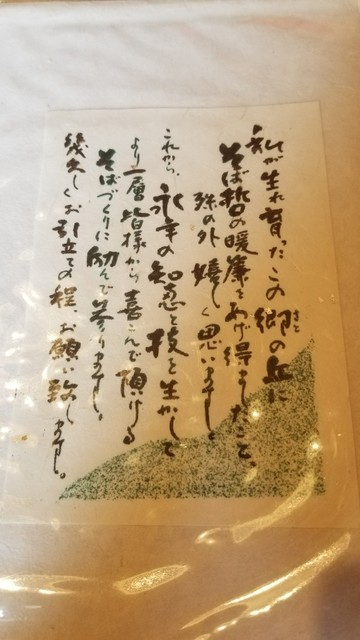 私が生れ育ったこの郷の丘に
さと
そば哲の暖簾をあげ得ましたこと、
殊の外嬉しく思いますと
これから、永辛の知恵と技を生かして
より一層皆様から喜こんで頂ける
そばづくりに励んで参ります。
幾久しくお引立ての程、お願い致します。